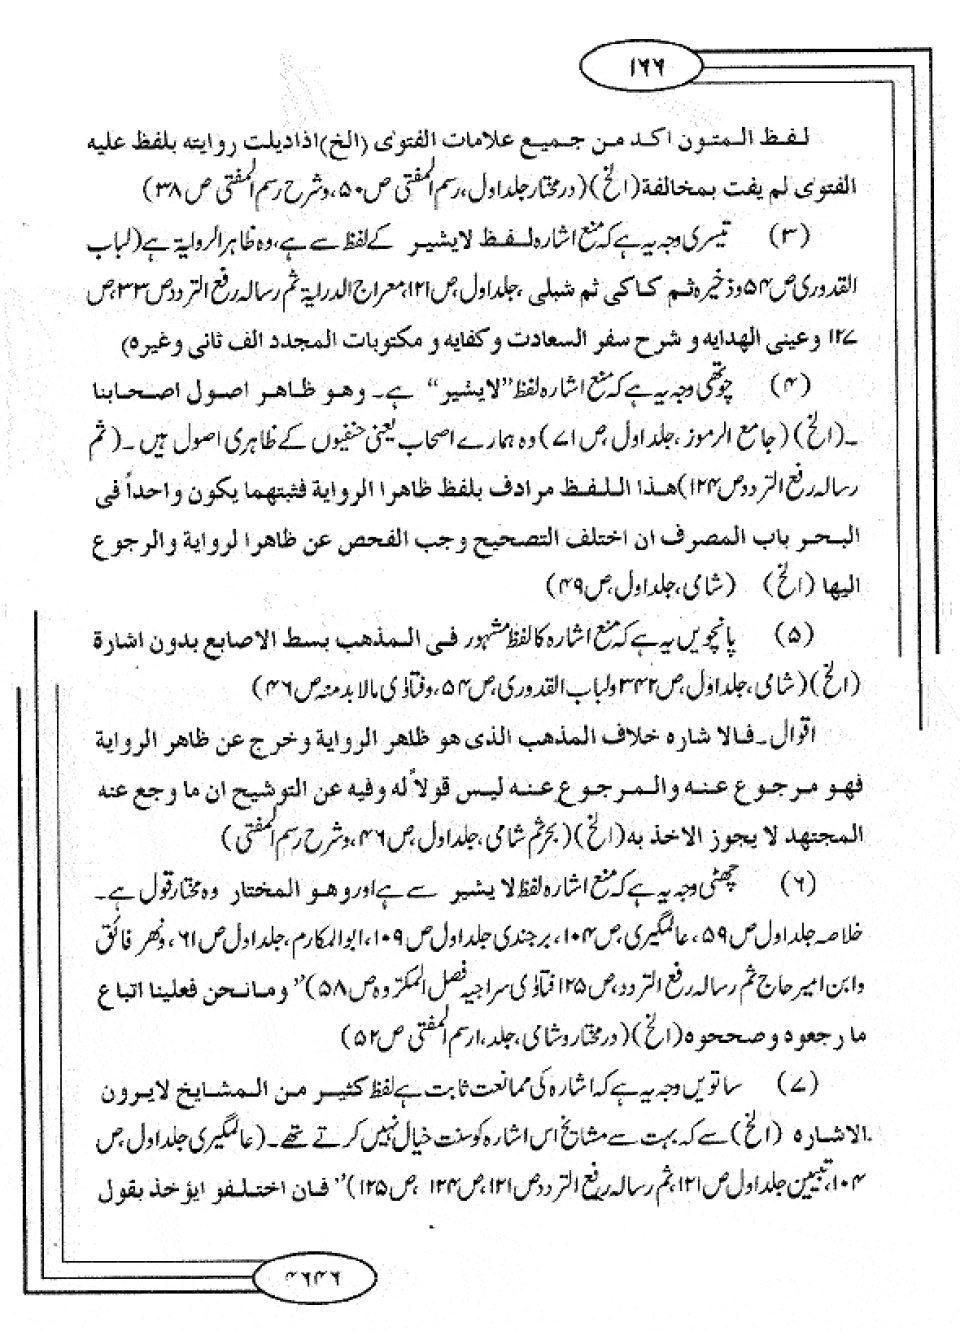 ۱۶۶
لفظ المتون اکد من جمیع علامات الفتوی (الخ) اذا ذیلت روایته بلفظ علیه
الفتوی لم یفت بمخالفة (الخ) (درمختار جلد اول، رسم المفتی ص۵۰، وشرح رسم المفتی ص۳۸)
(۳) تیسری وجہ یہ ہے کہ منع اشارہ لفظ لا یشیر کے لفظ سے ہے، وہ ظاہر الروایة ہے (لباب
القدوری ص۵۴ وذخیرہ ثم کاکی ثم شبلی، جلد اول، ص۱۲۱، معراج الدرایة ثم رسالہ رفع التردد ص۳۳، ص
۱۲۷ وعینی الهدایه و شرح سفر السعادت و کفایه و مکتوبات المجدد الف ثانی وغیرہ)
(۴) چوتھی وجہ یہ ہے کہ منع اشارہ لفظ ”لا یشیر“ ہے۔ وهو ظاهر اصول اصحابنا
۔(الخ) (جامع الرموز، جلد اول، ص۷۱) وہ ہمارے اصحاب یعنی حنفیوں کے ظاہری اصول ہیں۔ (ثم
رسالہ رفع التردد ص۱۲۴) هذا اللفظ مرادف بلفظ ظاهرا الرواية فثبتهما یکون واحداً فی
البحر باب المصرف ان اختلف التصحیح وجب الفحص عن ظاهرا لروایة والرجوع
الیها (الخ) (شامی، جلد اول، ص۴۹)
(۵) پانچویں یہ ہے کہ منع اشارہ کا لفظ مشہور فی المذهب بسط الاصابع بدون اشارة
(الخ) (شامی، جلد اول، ص۳۴۲ ولباب القدوری، ص۵۴، وفتاوٰی مالا بدمنہ ص۴۶)
اقوال۔ فالا شاره خلاف المذهب الذی هو ظاهر الروایة وخرج عن ظاهر الروایة
فهو مرجوع عنه والمرجوع عنه لیس قولاً له وفیه عن التوشیح ان ما رجع عنه
المجتهد لا یجوز الاخذ به (الخ) (بحر ثم شامی، جلد اول، ص۴۶، وشرح رسم المفتی)
(۶) چھٹی وجہ یہ ہے کہ منع اشارہ لفظ لا یشیر سے ہے اور وهو المختار وہ مختار قول ہے۔
خلاصہ جلد اول ص۵۹، عالمگیری، ص۱۰۴، برجندی جلد اول ص۱۰۹، ابوالمکارم، جلد اول ص۶۱، ونهر فائق
وابن امیر حاج ثم رسالہ رفع التردد، ص۱۲۵ فتاوٰی سراجیہ فصل المکروہ ص۵۸)” ومانحن فعلینا اتباع
ما رجعوه وصححوه (الخ) (درمختار وشامی، جلد، ارسم المفتی ص۵۲)
(۷) ساتویں وجہ یہ ہے کہ اشارہ کی ممانعت ثابت ہے لفظ کثیر من المشایخ لایرون
الاشاره (الخ) سے کہ بہت سے مشایخ اس اشارہ کو سنت خیال نہیں کرتے تھے۔ (عالمگیری جلد اول، ص
۱۰۴، تبیین جلد اول ص۱۲۱، ثم رسالہ رفع التردد ص۱۲۱، ص۱۲۴، ص۱۲۵)” فان اختلفو ایؤخذ بقول
۴۶۴۶